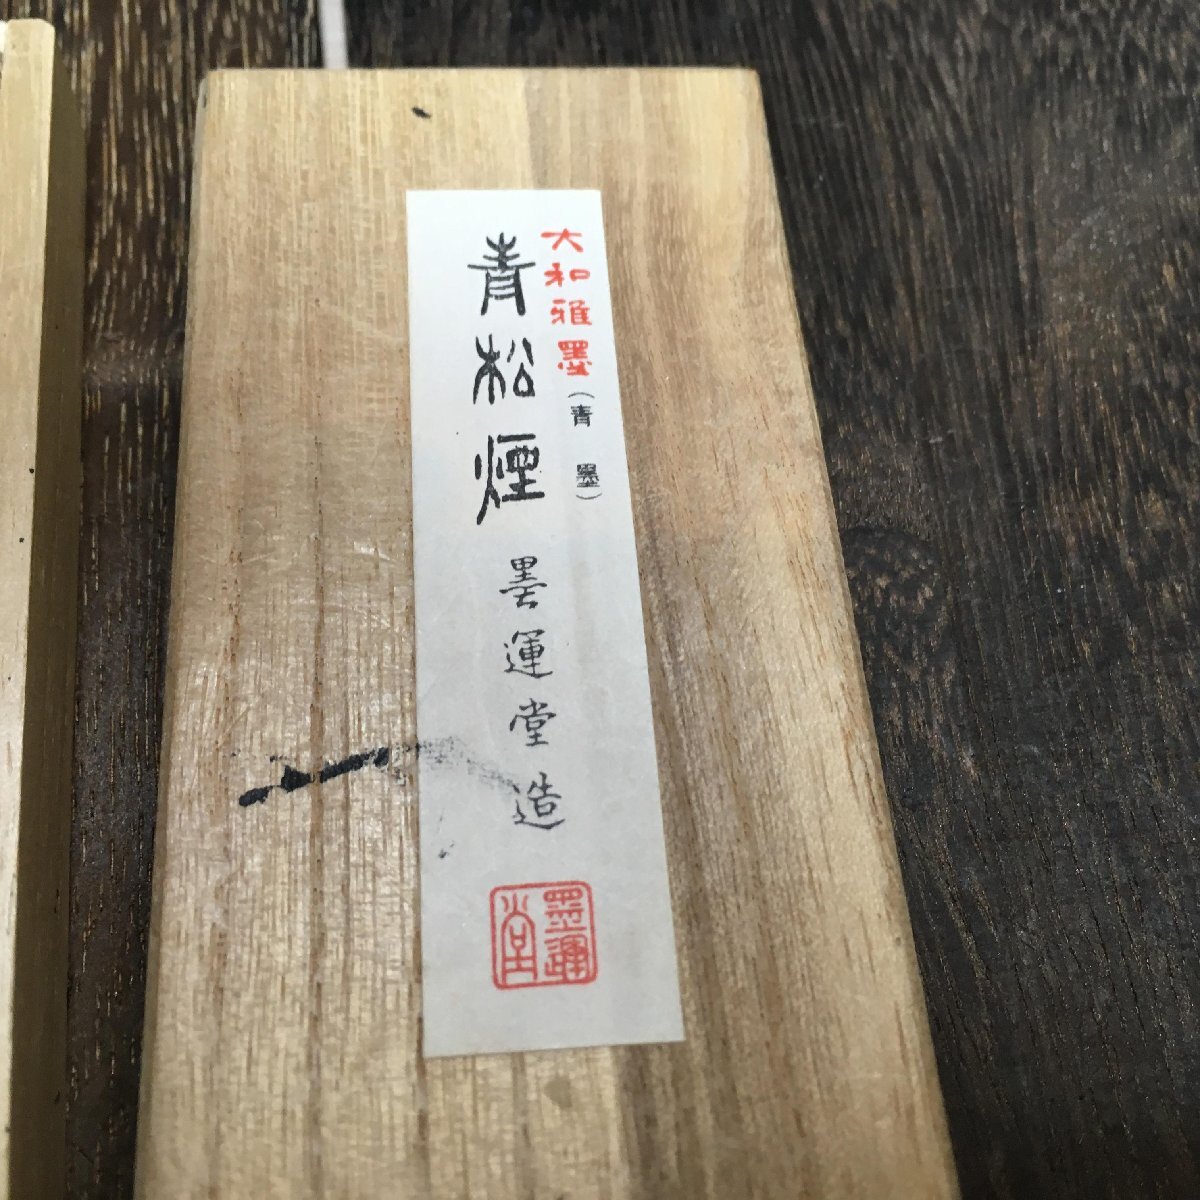 大和雅墨(青墨)
青松煙
墨運堂造
墨運堂